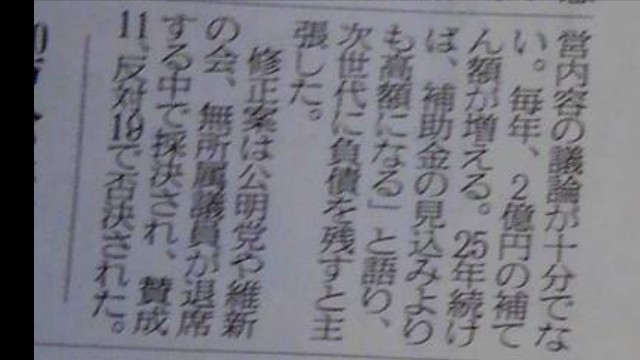 営内容の議論が十分でな
い。毎年、2億円の補て
ん額が増える。25年続け
ば、補助金の見込みより
も高額になる」と語り、
次世代に負債を残すと主
張した。
　修正案は公明党や維新
の会、無所属議員が退席
する中で採決され、賛成
11、反対19で否決された。